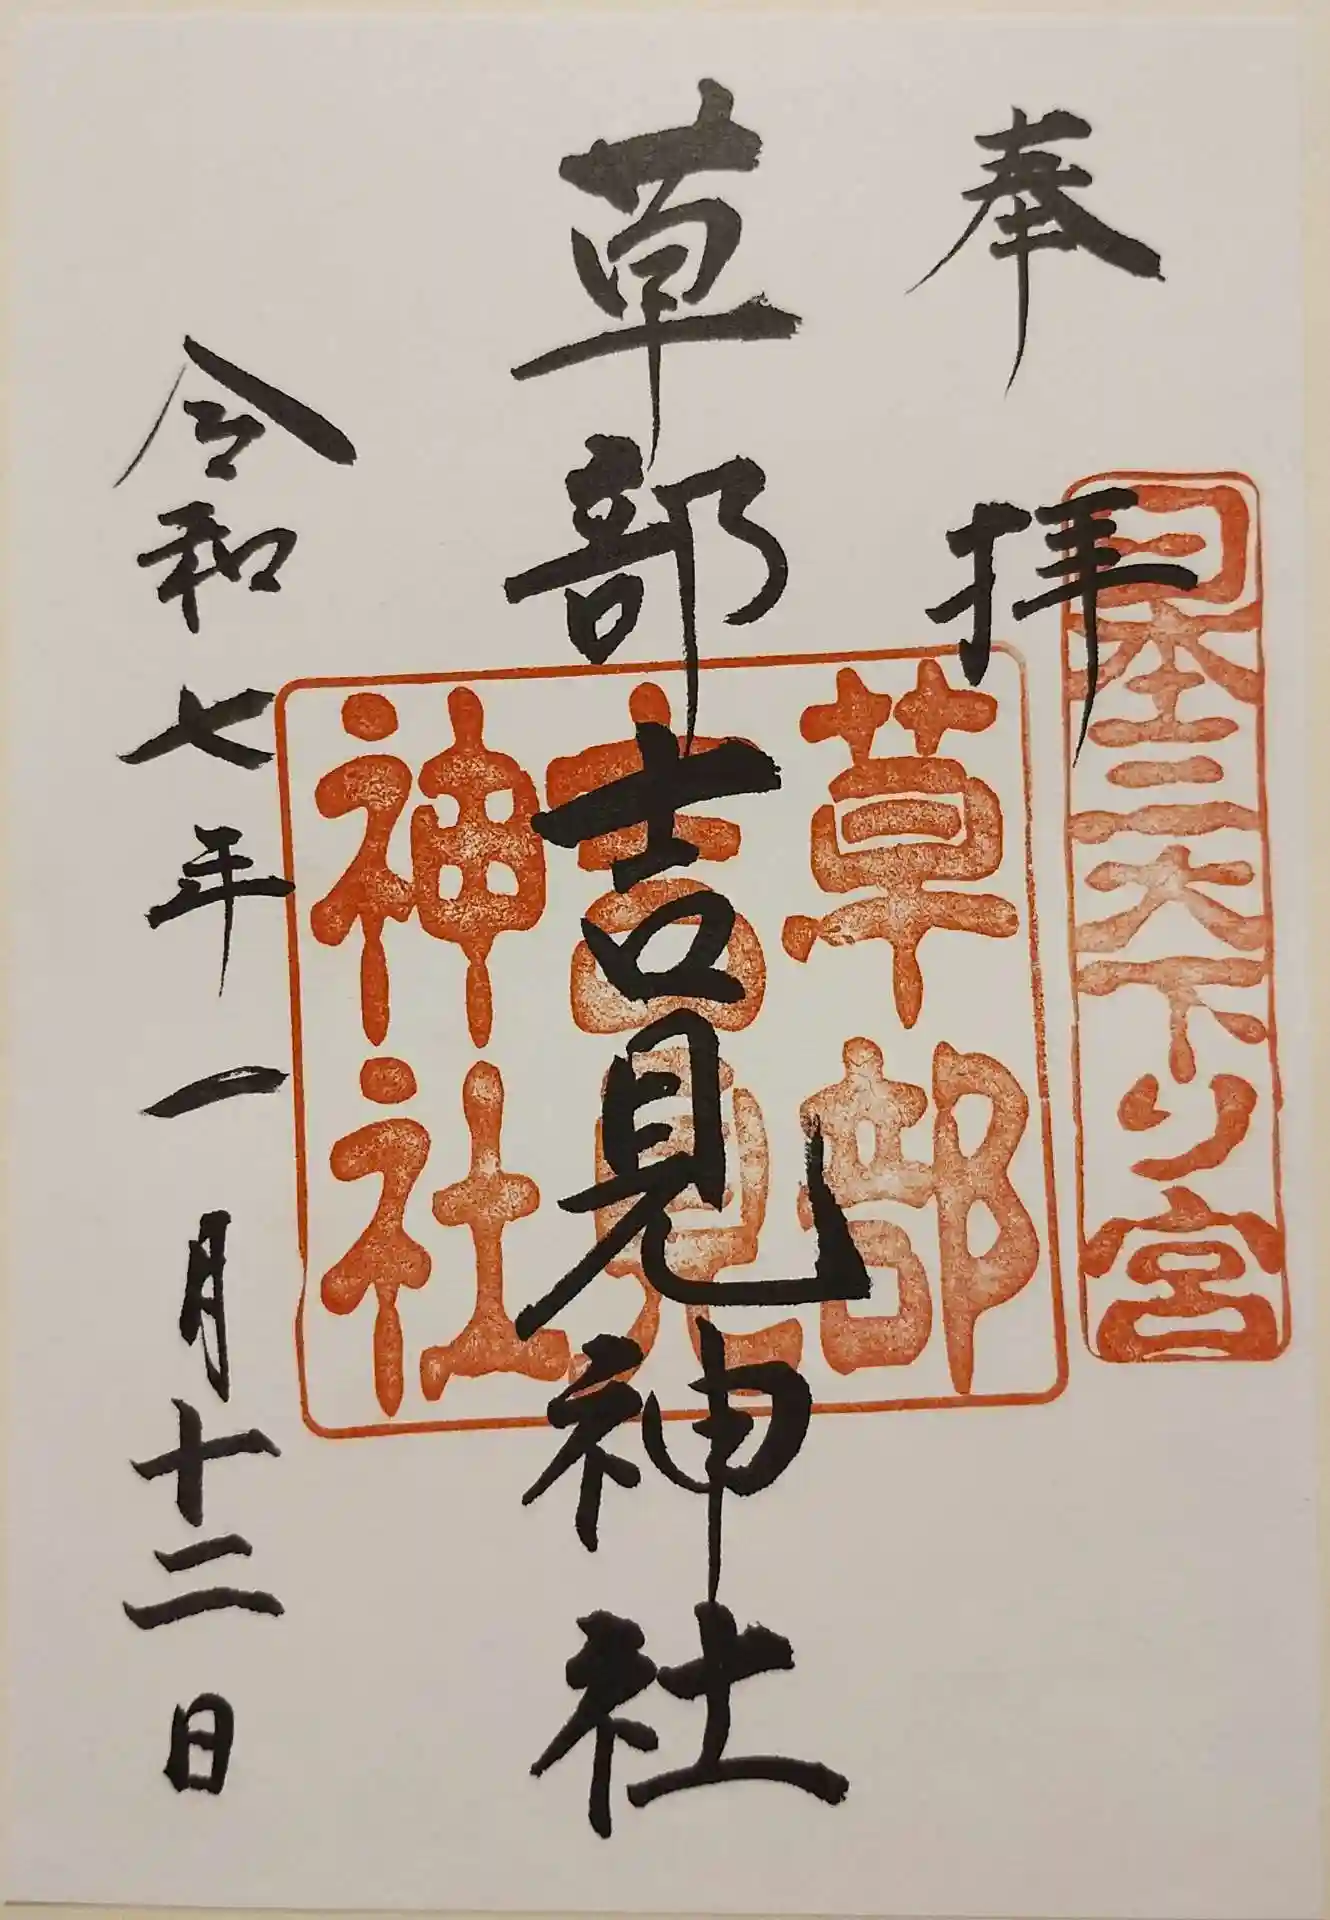 奉拝
日本三大下り宮
草部吉見神社
草部
吉見
神社
令和七年一月十二日